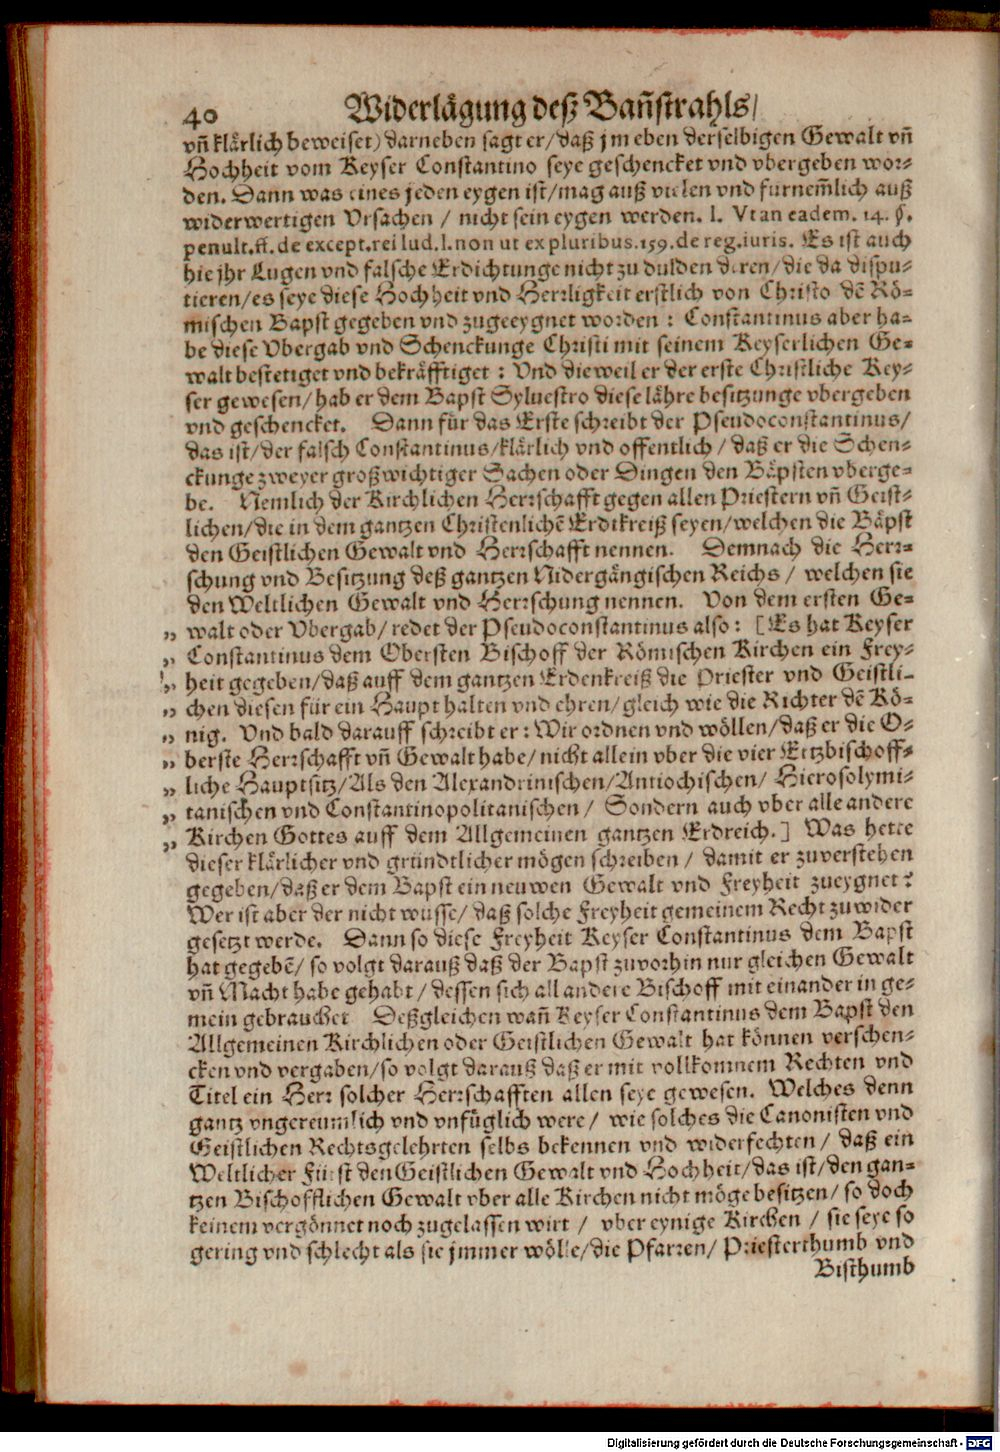 40 Widerlågung deß Bañstrahls/
vñ klårlich beweiset) darneben sagt er/daß jm eben derselbigen Gewalt vñ
Hochheit vom Keyser Constantino seye geschencket vnd vbergeben wor-
den. Dann was eines jeden eygen ist/mag auß vielen vnd fürnem̃lich auß
widerwertigen Vrsachen / nicht sein eygen werden. l. Vt an eadem. 14. §.
penult. ff. de except. rei iud. l. non ut ex pluribus. 159. de reg. iuris. Es ist auch
hie jhr Lugen vnd falsche Erdichtunge nicht zu dulden deren/die da dispu-
tieren/es seye diese Hochheit vnd Herrligkeit erstlich von Christo dẽ Rö-
mischen Bapst gegeben vnd zugeeygnet worden : Constantinus aber ha-
be diese Vbergab vnd Schenckunge Christi mit seinem Keyserlichen Ge-
walt bestetiget vnd bekråfftiget : Vnd dieweil er der erste Christliche Key-
ser gewesen/hab er dem Bapst Syluestro diese låhre besitzunge vbergeben
vnd geschencket. Dann für das Erste schreibt der Pseudoconstantinus/
das ist/der falsch Constantinus/klårlich vnd offentlich/daß er die Schen-
ckunge zweyer großwichtiger Sachen oder Dingen den Båpsten vberge-
be. Nemlich der Kirchlichen Herrschafft gegen allen Priestern vñ Geist-
lichen/die in dem gantzen Christenlichẽ Erdtkreiß seyen/welchen die Båpst
den Geistlichen Gewalt vnd Herrschafft nennen. Demnach die Herr-
schung vnd Besitzung deß gantzen Nidergångischen Reichs / welchen sie
den Weltlichen Gewalt vnd Herrschung nennen. Von dem ersten Ge-
„ walt oder Vbergab/redet der Pseudoconstantinus also : [Es hat Keyser
„ Constantinus dem Obersten Bischoff der Römischen Kirchen ein Frey-
„ heit gegeben/daß auff dem gantzen Erdenkreiß die Priester vnd Geistli-
„ chen diesen für ein Haupt halten vnd ehren/gleich wie die Richter dẽ Kö-
„ nig. Vnd bald darauff schreibt er : Wir ordnen vnd wöllen/daß er die O-
„ berste Herrschafft vñ Gewalt habe/nicht allein vber die vier Ertzbischoff-
„ liche Hauptsitz/Als den Alexandrinischen/Antiochischen/ Hierosolymi-
„ tanischen vnd Constantinopolitanischen/ Sondern auch vber alle andere
„ Kirchen Gottes auff dem Allgemeinen gantzen Erdreich.] Was hette
dieser klårlicher vnd gründtlicher mögen schreiben / damit er zuverstehen
gegeben/daß er dem Bapst ein neuwen Gewalt vnd Freyheit zueygnet?
Wer ist aber der nicht wüsse/daß solche Freyheit gemeinem Recht zuwider
gesetzt werde. Dann so diese Freyheit Keyser Constantinus dem Bapst
hat gegebẽ/ so volgt darauß daß der Bapst zuvorhin nur gleichen Gewalt
vñ Macht habe gehabt / dessen sich all andere Bischoff mit einander in ge-
mein gebrauchet Deßgleichen wañ Keyser Constantinus dem Bapst den
Allgemeinen Kirchlichen oder Geistlichen Gewalt hat können verschen-
cken vnd vergaben/so volgt darauß daß er mit vollkomnem Rechten vnd
Titel ein Herr solcher Herrschafften allen seye gewesen. Welches denn
gantz vngereumlich vnd vnfüglich were / wie solches die Canonisten vnd
Geistlichen Rechtsgelehrten selbs bekennen vnd widerfechten / daß ein
Weltlicher Fürst den Geistlichen Gewalt vnd Hochheit/das ist/den gan-
tzen Bischofflichen Gewalt vber alle Kirchen nicht möge besitzen/ so doch
keinem vergönnet noch zugelassen wirt / vber eynige Kirchen / sie seye so
gering vnd schlecht als sie jmmer wölle/die Pfarren/ Priesterthumb vnd
Bisthumb
Digitalisierung gefördert durch die Deutsche Forschungsgemeinschaft - DFG